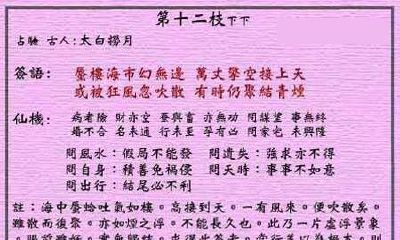 第十二枝下下
占驗 古人:太白撈月
簽語: 蜃樓海市幻無邊 萬丈擎空接上天
或被狂風忽吹散 有時仍聚結青煙
仙機: 病者險 財亦空 蠶與畜 亦無功 問謀望 事無終
婚不合 名未通 行未至 孕有凶 問家宅 未興隆
問風水:假局不能發 問遺失:強求亦不得
問自身:積善免禍侵 問天時:事事不如意
問出行:結尾必不利
註:海中蜃蛤吐氣如樓。高接到天。一有風來。便吹散矣。
雖散而復聚。亦如煙之浮。不能長久也。此乃一片虛浮景象